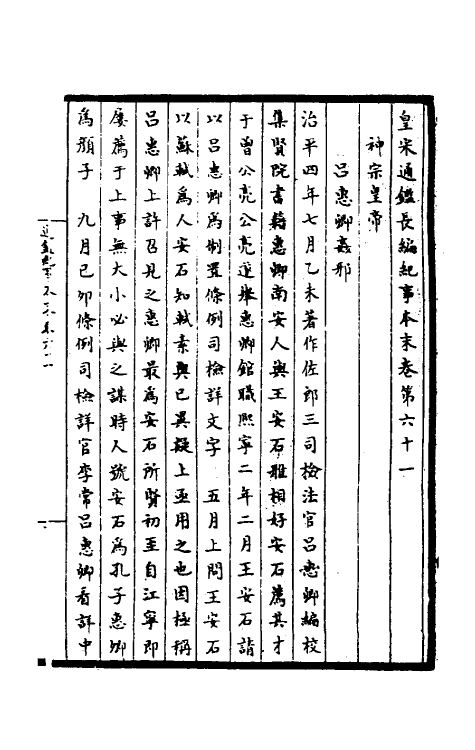 皇宋通鑑長編紀事本末卷第六十一
神宗皇帝
呂惠卿姦邪
治平四年七月乙未著作佐郎三司檢法官呂惠卿編校
集賢院書籍惠卿南安人與王安石雅相好安石薦其才
于曾公亮公亮遂舉惠卿館職熙寧二年二月王安石請
以呂惠卿為制置條例司檢詳文字 五月上問王安石
以蘇軾為人安石知軾素與已異疑上亟用之也因極稱
呂惠卿上許召見之惠卿最為安石所賢初至自江寧即
屢薦于上事無大小必與之謀時人號安石為孔子惠卿
為顏子 九月已卯條例司檢詳官李常呂惠卿看詳中